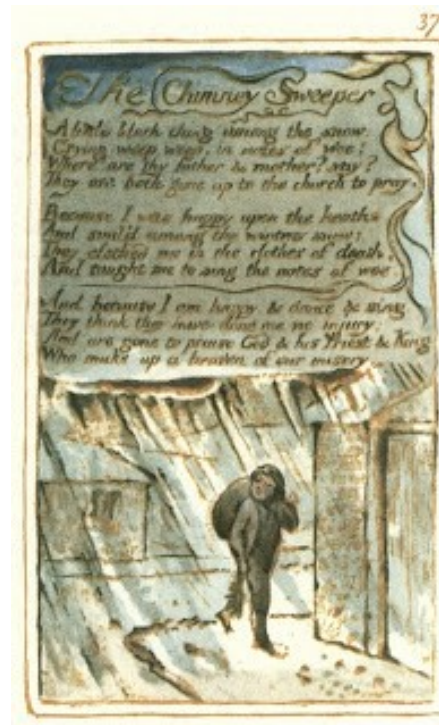 37
The Chimney Sweeper
A little black thing among the snow:
Crying weep, weep, in notes of woe!
Where are thy father & mother? say?
They are both gone up to the church to pray.
Because I was happy upon the heath,
And smil'd among the winters snow:
They clothed me in the clothes of death,
And taught me to sing the notes of woe.
And because I am happy & dance & sing,
They think they have done me no injury:
And are gone to praise God & his Priest & King
Who make up a heaven of our misery.